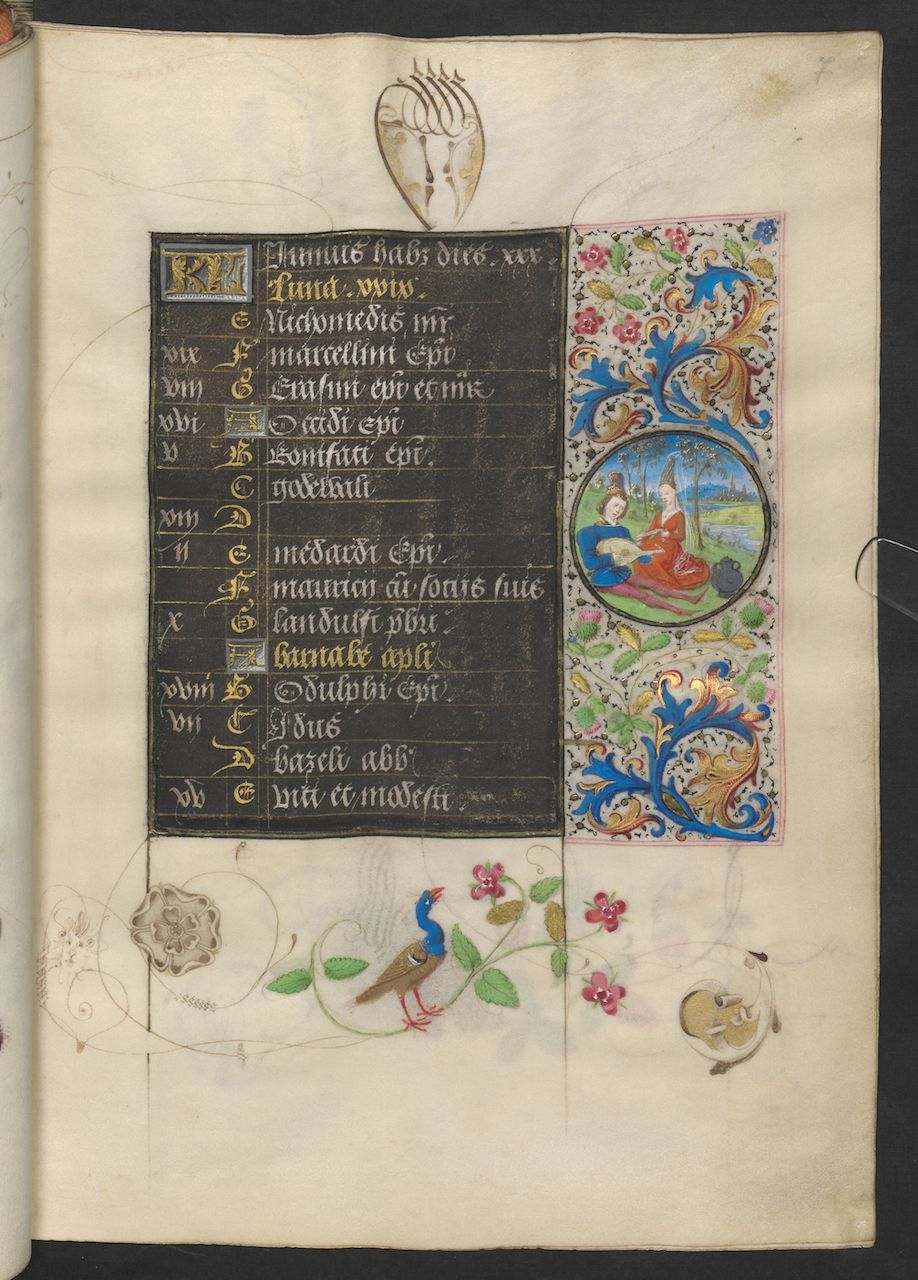 7
KL Junius habz dies .xxx.
Luna .xxix.
e Nichomedis mr
xix F marcellini Epi
viii G Erasmi epi et mr
xvi A Ocadi Epi
v B Bonifati epi.
C godelvili
xiii D
ii e medardi Epi
F mauricii cu socijs suis
x G landulfi pbri
A barnabe apli
xviii B Odulphi Epi
vii C Idus
D bazeli abb
xv E viti et modesti.